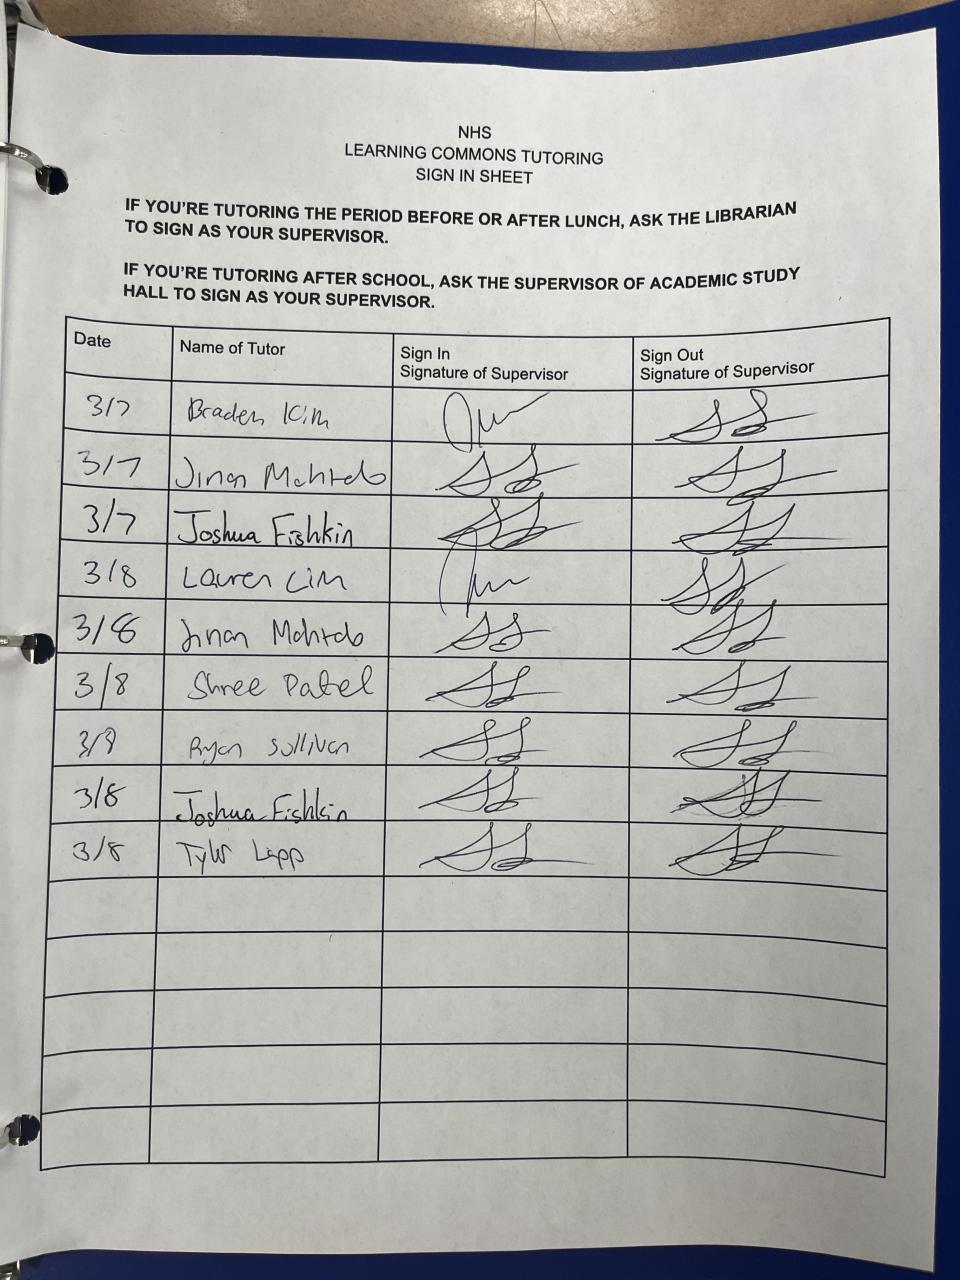 NHS
LEARNING COMMONS TUTORING
SIGN IN SHEET
IF YOU'RE TUTORING THE PERIOD BEFORE OR AFTER LUNCH, ASK THE LIBRARIAN
TO SIGN AS YOUR SUPERVISOR.
IF YOU'RE TUTORING AFTER SCHOOL, ASK THE SUPERVISOR OF ACADEMIC STUDY
HALL TO SIGN AS YOUR SUPERVISOR.
Date Name of Tutor Sign In Sign Out
Signature of Supervisor Signature of Supervisor
3/7 Braden Kim
3/7 Jinan Mehtab
3/7 Joshua Fishkin
3/8 Lauren Lim
3/8 Jinan Mehtab
3/8 Shree Patel
3/8 Ryan Sullivan
3/8 Joshua Fishkin
3/8 Tyler Lapp